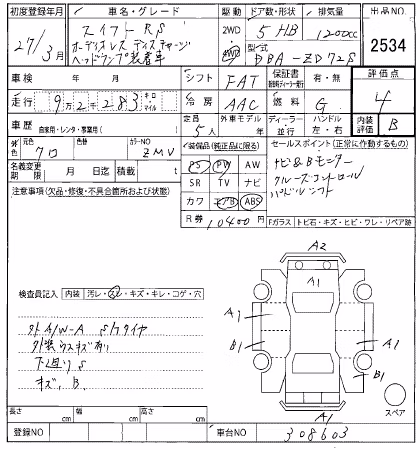 初度登録年月 車名・グレード 駆動 ドア数・形状 排気量 出品NO
27/3月 スイフト RS 2WD 5 HB 1200cc 2534
オーディオレス ディスチャージ 4WD 型式
ヘッドランプ装着車 DBA-ZD72S
車検 年 月 シフト FAT 保証書 有・無 評価点
走行 9万2千283 キロ・マイル 冷房 AAC 燃料 G 4
車歴 自家用・レンタ・事業用( ) 定員 5人 外車モデル 年 ディーラー 並行 ハンドル 左・右 内装評価 B
外色 元色 クロ 色替 カラーNO ZMV
装備品(純正品に限る) セールスポイント(正常に作動するもの)
名義変更期限 月 日迄 積載量 t
PS PW AW ナビ&Bモニター
SR TV ナビ クルーズコントロール
カワ エアB ABS パドルシフト
注意事項(欠品・修復・不具合箇所および状態)
R券 10400円 Fガラス トビ石・キズ・ヒビ・ワレ・リペア跡
検査員記入 内装 汚レ・スレ・キズ・キレ・コゲ・穴
外A/W-A Sタイヤ
外装ウスキズ有り
下廻りS
キズ、B.
A2
A1
A1
B1
A1
B1
A1
スペア
長さ cm 幅 cm 高さ cm
登録NO 車台NO 308603